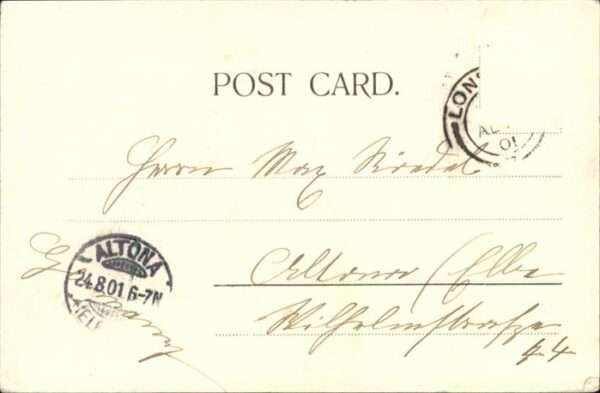 POST CARD.
LON
AU
01
Herrn Max Riedel
Altona (Elbe
Wilhelmstrasse
44
Germany
ALTONA
24.8.01 6-7N